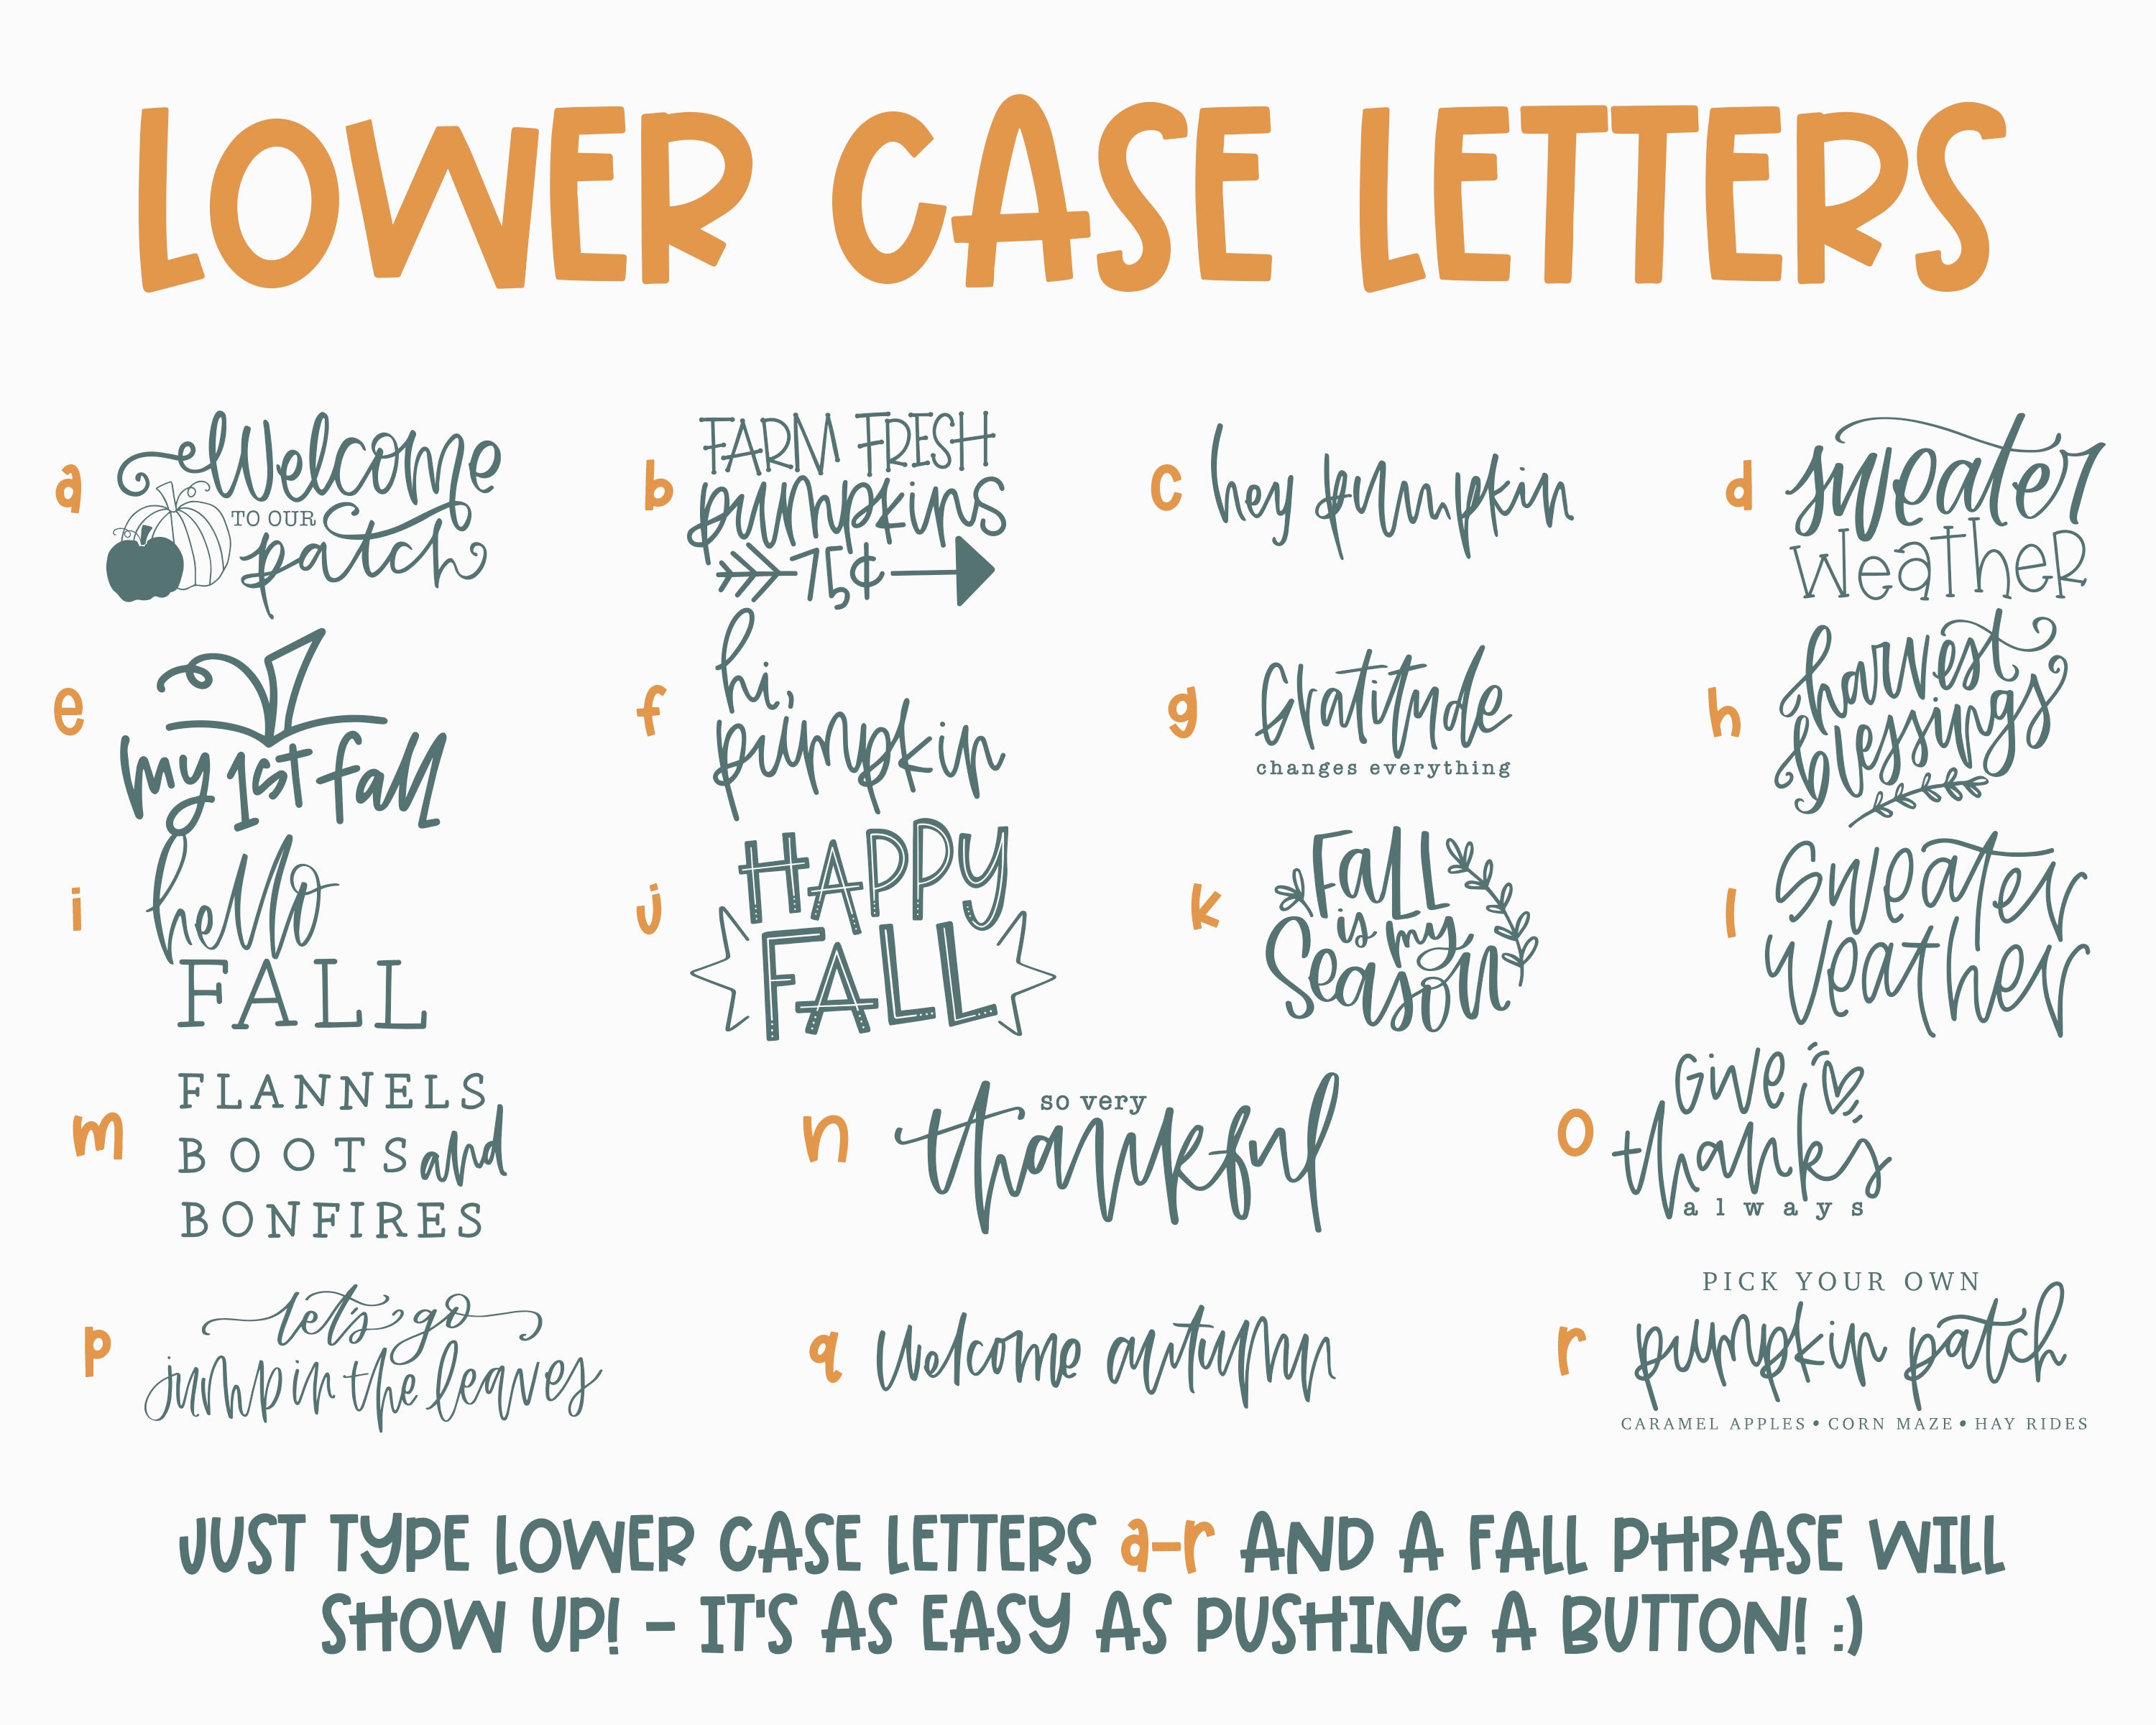 LOWER CASE LETTERS
a
Welcome
TO OUR
patch
b
FARM FRESH
pumpkins
75¢
c
hey pumpkin
d
sweater
weather
e
my 1st fall
f
hi,
pumpkin
g
Gratitude
changes everything
h
harvest
blessings
i
hello
FALL
j
HAPPY
FALL
k
Fall
is my
Season
l
Sweater
Weather
m
FLANNELS
BOOTS and
BONFIRES
n
so very
thankful
o
Give
thanks
always
p
let's go
jump in the leaves
q
welcome autumn
r
PICK YOUR OWN
pumpkin patch
CARAMEL APPLES • CORN MAZE • HAY RIDES
JUST TYPE LOWER CASE LETTERS a-r AND A FALL PHRASE WILL
SHOW UP! - IT'S AS EASY AS PUSHING A BUTTON! :)